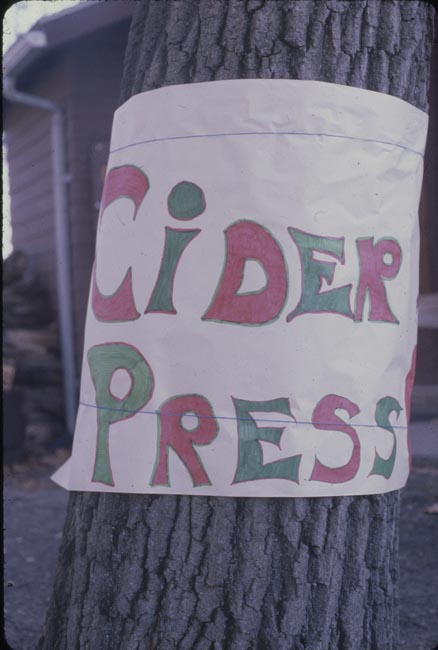 CiDER
PRESS